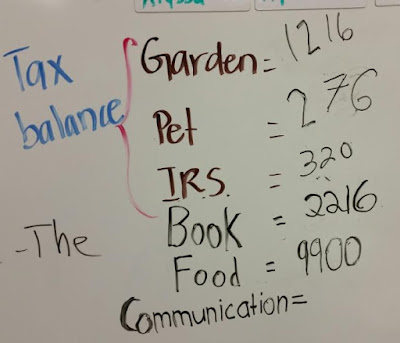 Tax balance
Garden = 1216
Pet = 276
I.R.S. = 320
-The Book = 2216
Food = 9900
Communication=